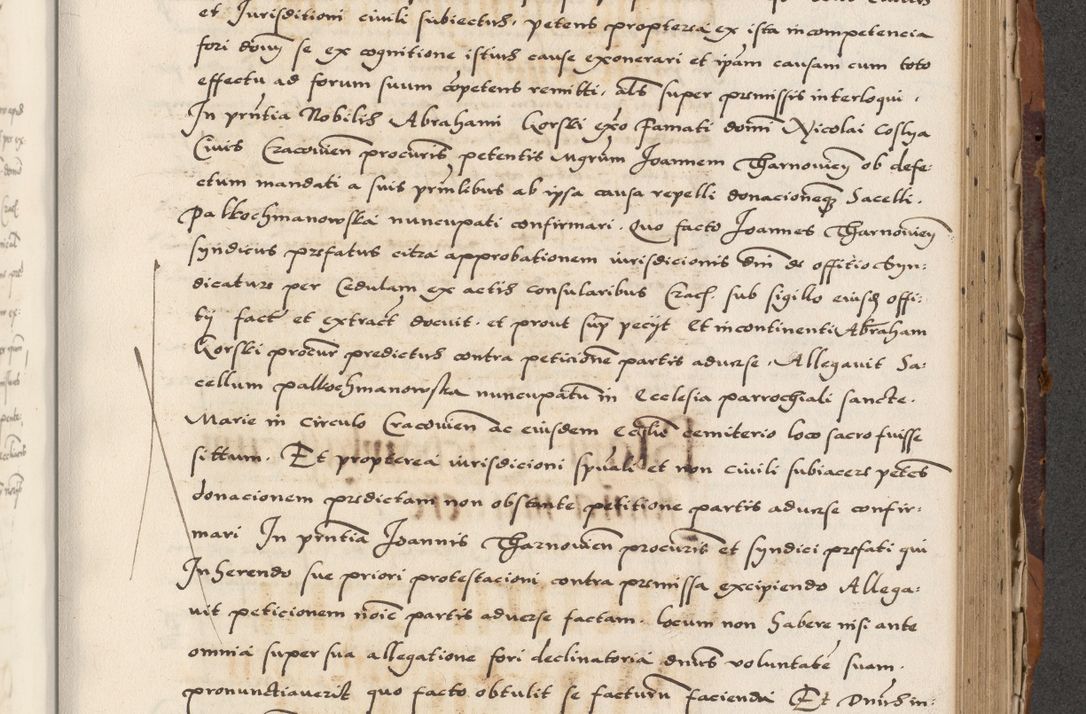 et Jurisditioni civili subiectus, petens propterea ex ista incompetencia
fori dominum se ex cognitione istius cause exonerari et ipam causam cum toto
effectu ad forum suum copetens remitti, als super premissis interloqui.
In pntia Nobilis Abrahami Gorski exo Famati domi Nicolai
Civis Cracovien procuris petentis Mgrum Joannem Tharnovien ob defe
ctum mandati a suis prinlibus ab ipsa causa repelli donacionemq Sacelli
palkochmanowska nuncupati confirmari. Quo facto Joannes Tharnovien
syndicus prefatus citra approbationem iurisdicionis dni de officio Syn:
dicature per Cedulam ex actis consularibus Crac. sub sigillo eiusd offi:
tij fact et extract docuit. et prout sup pecijt Et incontinenti Abraham
Gorski procur predictus contra peticione partis adverse. Allegavit Sa:
cellum palkochmanowska nuncupatu in Ecclesia parrochiali sancte.
Marie in circulo Cracovien ac eiusdem Ecclie cemiterio loco sacro fuisse
sittum. Et propterea iurisdicioni spuali et non civili subiacere petes
donacionem predictam non obstante petitione partis adverse confir:
mari In pntia Joannis Tharnovien procuris et syndici prefati qui
Inherendo sue priori protestacioni contra premissa excipiendo Allega:
vit peticionem noie partis adverse factam. locum non habere nisi ante
omnia super sua allegatione fori declinatoria dnus voluntate suam.
pronunctiaverit quo facto obtulit se facturu facienda Et Dnus in: